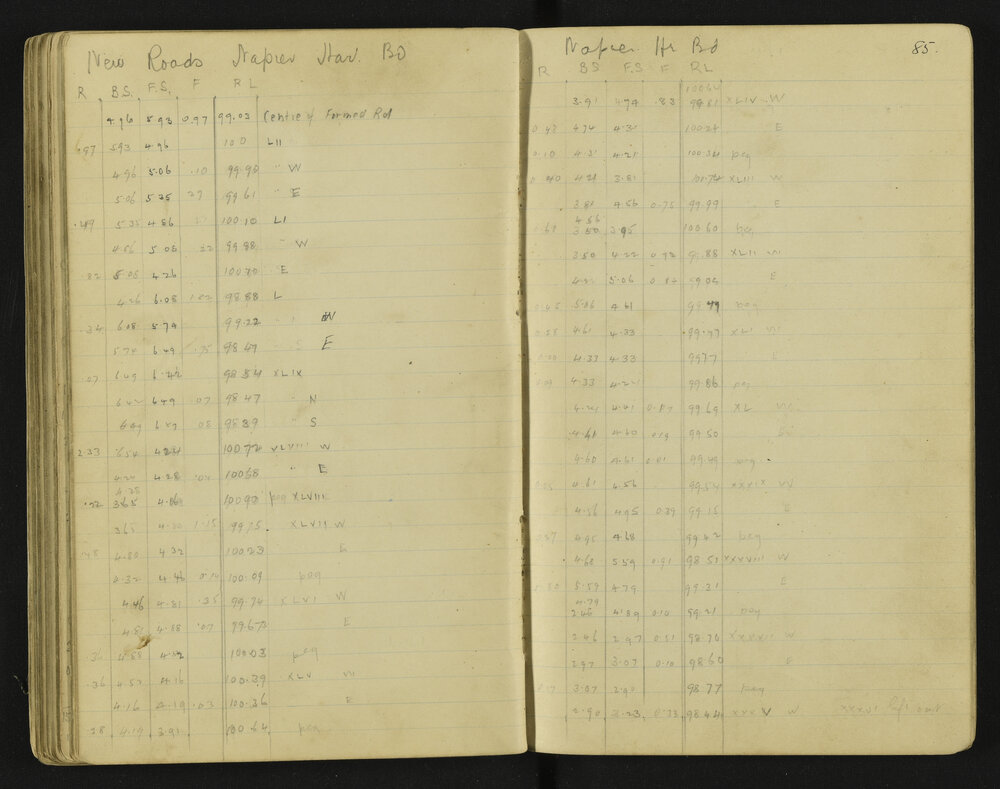 New Roads Napier Har. Bd
R B.S. F.S. F RL
4.96 5.93 0.97 99.03 Centre of Formed Rd
.97 5.93 4.96 100 LII
4.96 5.06 .10 99.90 " W
5.06 5.35 .29 99.61 " E
.49 5.35 4.86 100.10 LI
4.86 5.08 .22 99.88 " W
.82 5.08 4.26 100.70 " E
4.26 6.08 1.82 98.88 L
.34 6.08 5.74 99.22 " W
5.74 6.49 .75 98.47 E
.07 6.49 6.42 98.54 XLIX
6.42 6.49 .07 98.47 " N
6.49 .08 98.39 " S
2.33 4.24 100.72 XLVIII W
4.24 4.28 .04 100.68 " E
4.28
.22 3.65 4.06 100.90 peg XLVIII
3.65 4.80 1.15 99.75 XLVII W
.48 4.80 4.32 100.23 E
4.32 4.46 0.14 100.09 peg
4.46 4.81 .35 99.74 XLVI W
4.81 4.88 .07 99.67 E
.36 4.88 4.52 100.03 peg
.36 4.52 4.16 100.39 XLV W
4.16 4.19 .03 100.36 E
.28 4.19 3.91 100.64 peg
Napier Hr Bd 85.
R B.S. F.S. F RL
100.64
3.91 4.74 .83 99.81 XLIV W
0.43 4.74 4.31 100.24 E
0.10 4.31 4.21 100.34 peg
0.40 4.21 3.81 100.74 XLIII W
3.81 4.56 0.75 99.99 E
4.56
.61 3.50 3.95 100.60 peg
3.50 4.22 0.72 99.88 XLII W
4.22 5.06 0.84 99.04 E
0.45 5.06 4.61 99.49 peg
0.28 4.61 4.33 99.77 XLI W
4.33 4.33 99.77 E
4.33 99.86 peg
4.41 99.69 XL W
4.41 4.60 0.19 99.50
4.60 4.61 0.01 99.49 peg
0.05 4.61 4.56 99.54 XXXIX W
4.56 4.95 0.39 99.15 E
0.27 4.95 4.68 99.42 peg
4.68 5.59 0.91 98.51 XXXVIII W
0.80 5.59 4.79 99.31 E
4.79
2.46 4.89 0.10 99.21 peg
2.46 2.97 0.51 98.70 W
2.97 3.07 0.10 98.60 E
0.17 3.07 2.90 98.77 peg
2.90 3.23 0.33 98.44 XXXV W XXXVI left out